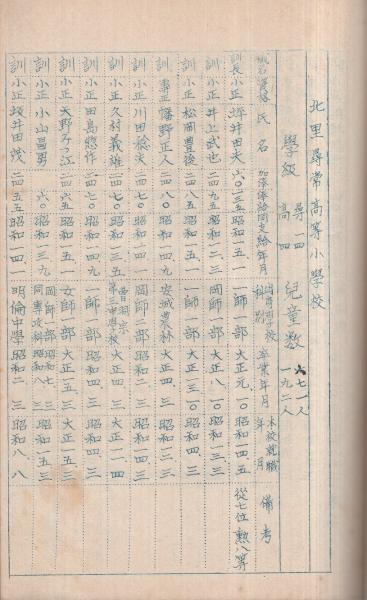 北里尋常高等小學校
學級 尋一四 高四 兒童數 六七一人 一九二人
職名 資格 氏名 加俸 俸給 同支給年月 出身學校 科別 卒業年月 本校就職年月 備考
訓長 小正 坪井田夫 六〇 一三五 昭和一五、一 一師一部 大正元、一〇 昭和一四、五 從七位勲八等
訓 小正 井上武也 二四 九五 昭和一二、三 一師一部 大正八、一〇 昭和一三、三
訓 小正 松岡豊後 二四 八五 昭和一五、一 一師一部 大正一三、一〇 昭和四、三
訓 專正 幡野正人 二四 八〇 昭和一四、九 安城農林 大正四、三 昭和一二、三
訓 小正 川田稔夫 二四 七〇 昭和一四、一 岡師二部 昭和二、三 昭和一四、三
訓 小正 久村義雄 二四 七〇 昭和一三、五 曹洞宗第三中學校 大正四、三 大正一一、四
訓 小正 田島惣作 二四 七〇 昭和一四、九 一師一部 昭和四、三 昭和四、三
訓 小正 大野 二四 六五 昭和一四、一 女師一部 大正一五、三 大正一五、三
訓 小正 小山昌男 六〇 昭和一三、九 岡師一部 同專攻科 昭和七、三 昭和八、三 昭和一五、三
訓 小正 坂井田茂 二四 五五 昭和一四、一 明倫中學 昭和二、三 昭和八、八